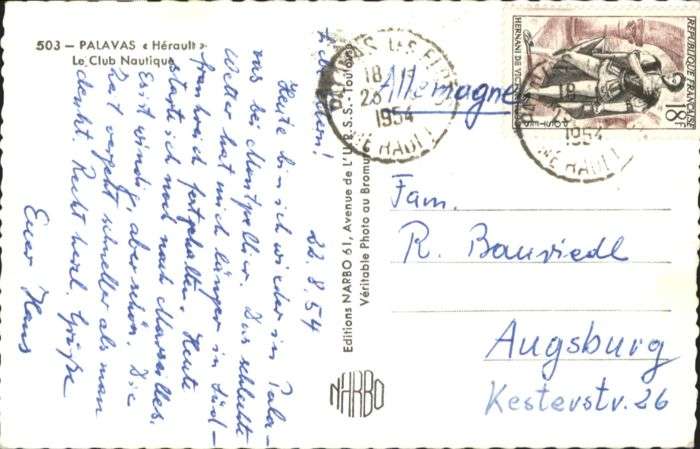 503 – PALAVAS « Hérault »
Le Club Nautique
22.8.54
Heute bin ich wieder in Pala-
vas bei Montpellier. Das schlechte
Wetter hat mich länger in Süd-
frankreich festgehalten. Heute
starte ich noch nach Marseilles.
Es ist windig, aber schön. Die
Zeit vergeht schneller als man
denkt. Recht herzl. Grüße
Euer Hans
Editions NARBO 61, Avenue de l'U.R.S.S. Toulouse
Véritable Photo au Bromure
NARBO
PALAVAS LES FLOTS
18
1954
HERAULT
REPUBLIQUE FRANÇAISE
POSTES
18F
HERNANI DE VICTOR HUGO
Allemagne
Fam.
R. Bauriedl
Augsburg
Kesterstr. 26